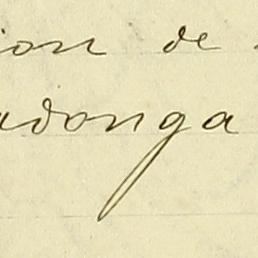 ion de
adonga